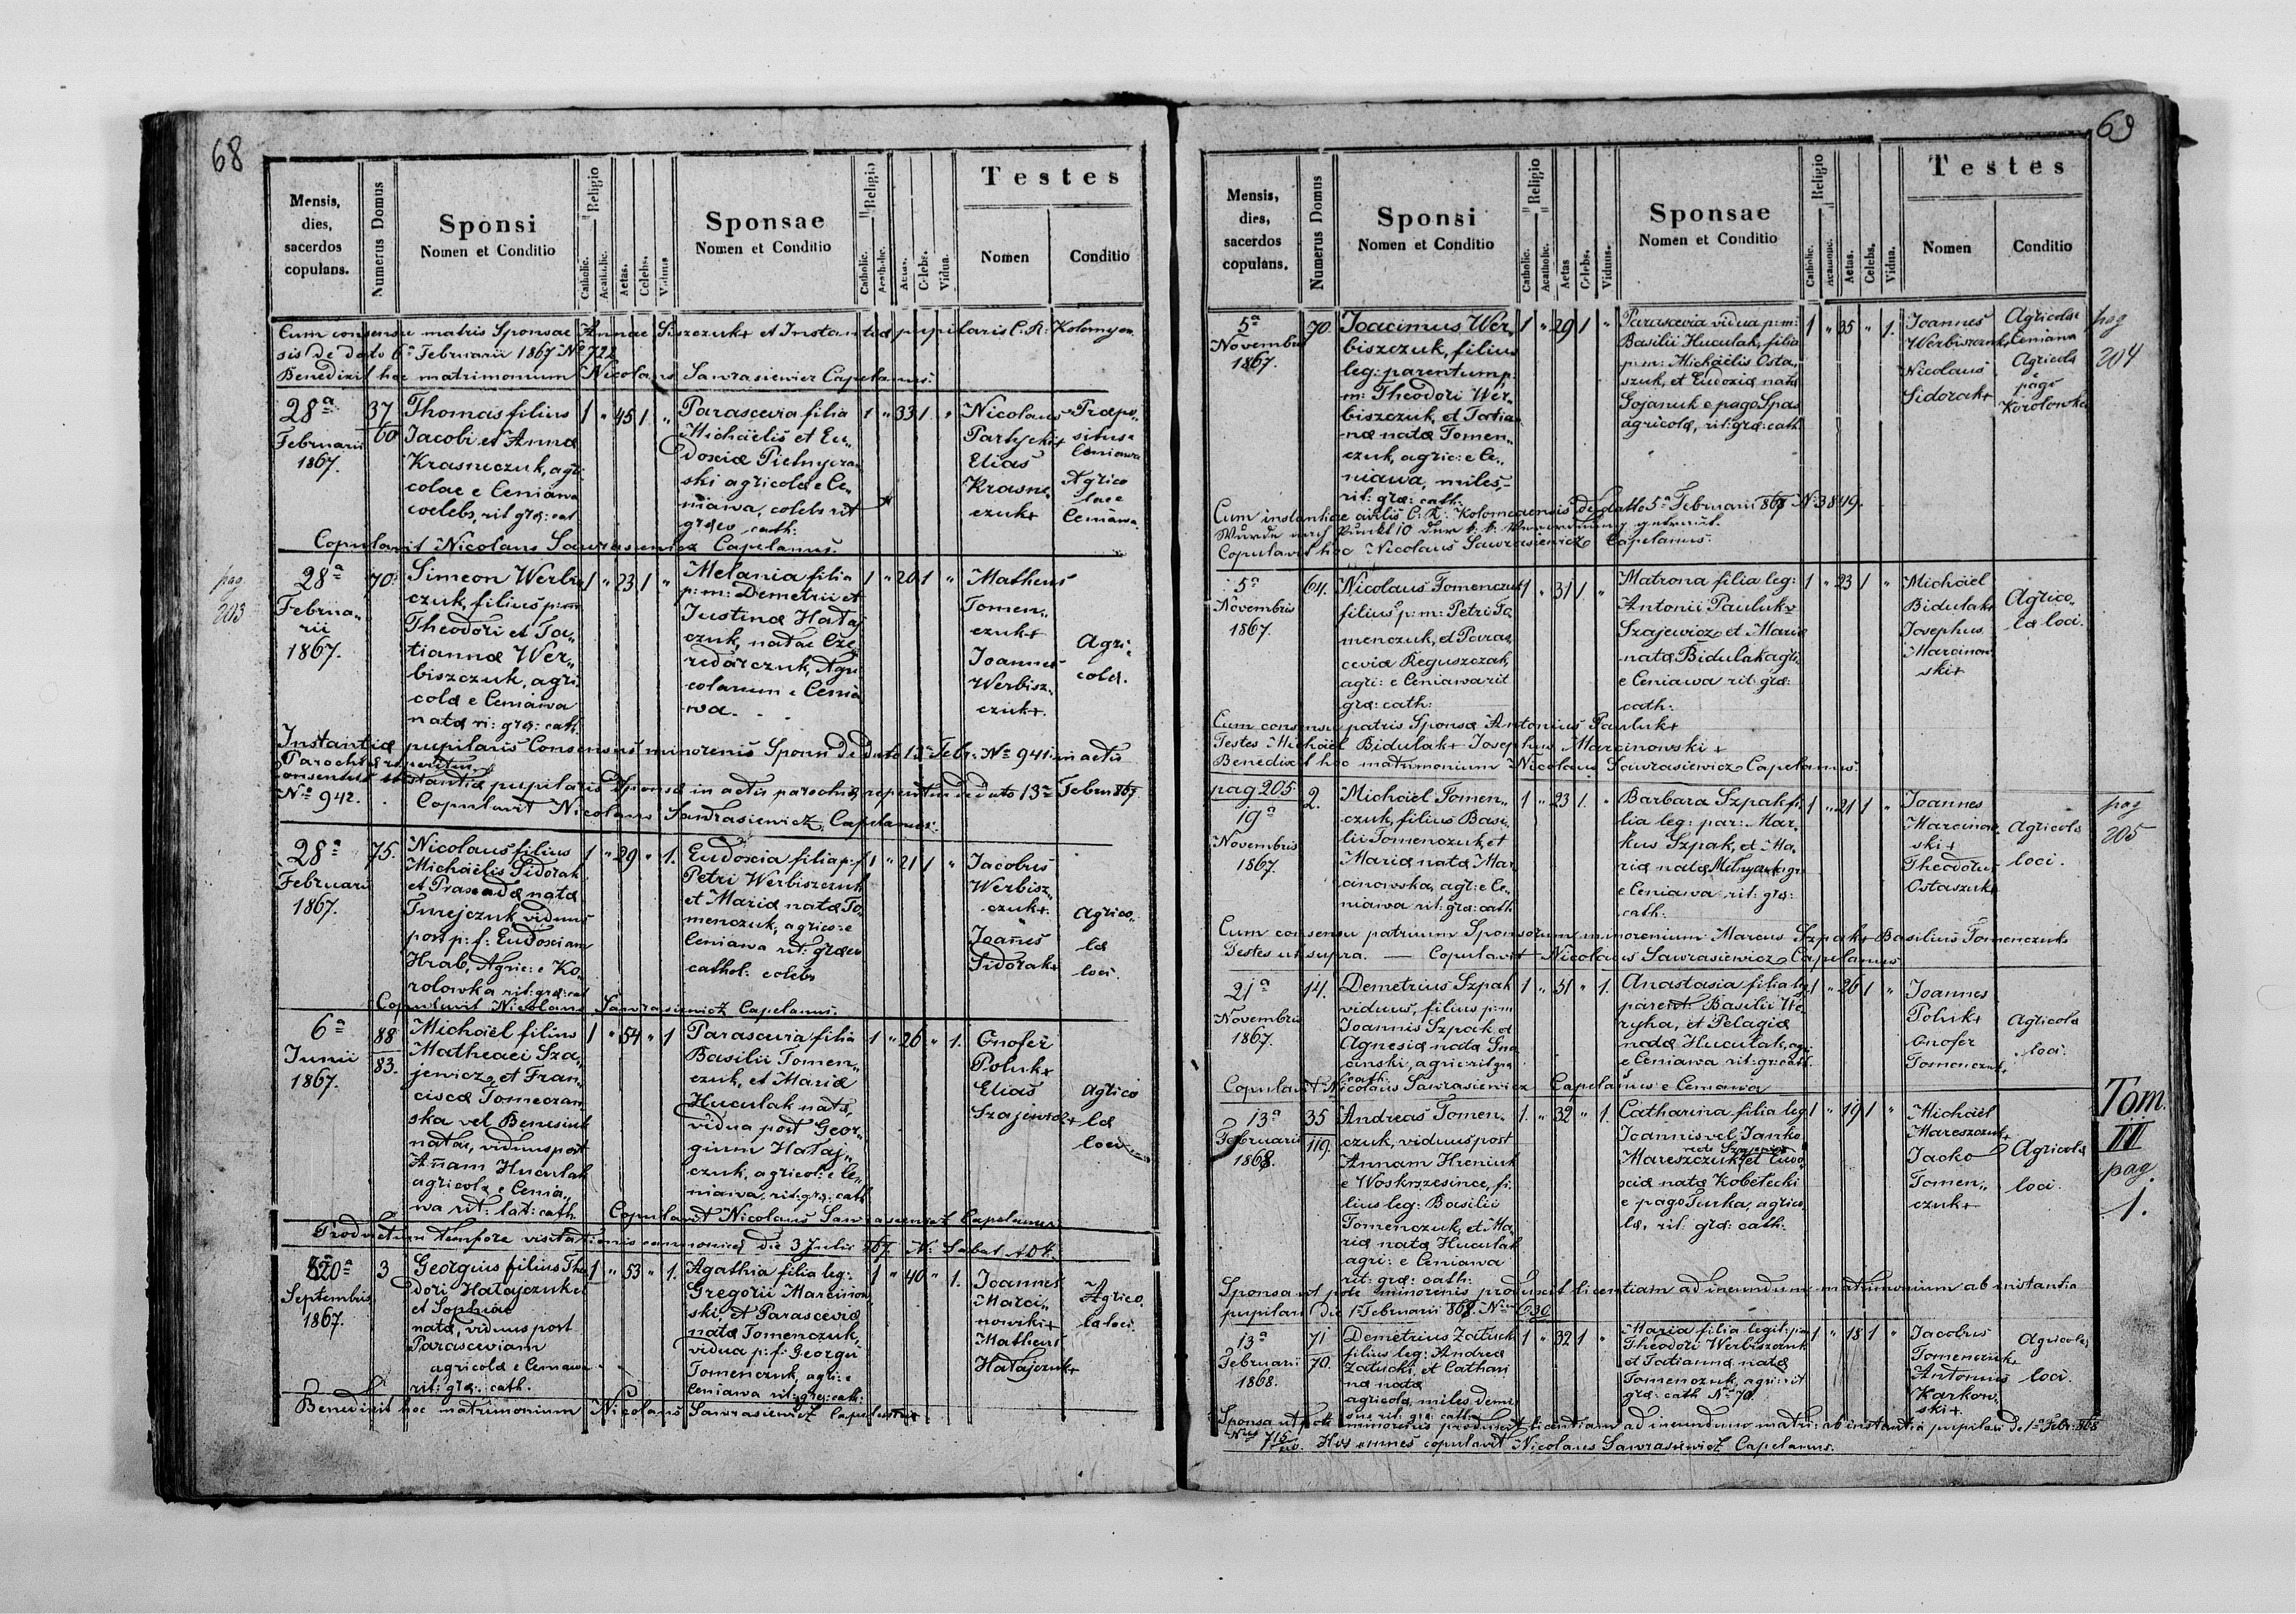 68
Mensis, dies, sacerdos copulans.
Numerus Domus
Sponsi
Nomen et Conditio
Religio
Catholic.
Acatholic.
Aetas.
Celebs.
Viduus
Sponsae
Nomen et Conditio
Religio
Catholic.
Acatholic.
Aetas.
Celebs.
Vidua.
Testes
Nomen
Conditio
Cum consensu matris Sponsae Annae et Instantiae pupilaris C. R. Kolomyen
sis de dato 6ª Februarii 1867 Nº 722
Benedixit hoc matrimonium Nicolaus Sawrasiewicz Capelanus.
28ª
Februarii
1867.
37
60
Thomas filius
Jacobi et Anna
Krasneczuk, agri
colae e Ceniawa
coelebs, rit. gra: cat
1 " 45 1 "
Parascevia filia
Michäelis et Eu„
doxiae
ski agricola e Ce„
niawa, celebs rit
graeo cath:
1 " 33 1 "
Nicolaus
Partycki+
Elias
Krasne„
czuk+
Praepo„
situs e
Ceniawa
Agrico
lae e
Ceniawa
Copulavit Nicolaus Sawrasiewicz Capelanus.
pag
203
28ª
Februa„
rii
1867.
70.
Simeon Werbisz
czuk, filius p: m:
Theodori et Ta„
tianna Wer„
biszczuk, agri
cola e Ceniawa
nata ri: gra: cath.
1 " 23 1 "
Melania filia
p: m: Demetrii et
Justina Hataj
czuk, natae Cze„
redarczuk, Agri
colarum e Cenia
wa.
1 " 20 1 "
Matheus
Tomen„
czuk+
Joannes
Werbisz„
czuk+.
Agri„
cola.
Instantiae pupilaris Consensus minorenis Sponsi de dato 13ª Febr: Nº 941. in actis
Parochiae reperitur
Consensus instantiae pupilaris Sponsa in actis parochiae reperitur de dato 13ª Febru 867
Nº 942. Copulavit Nicolaus Sawrasiewicz, Capelanus.
28ª
Februarii
1867.
75.
Nicolaus filius
Michäelis Sidorak
et nata
viduus
post p: f: Eudoxiam
Hrab, Agric: e Ko„
rolowka rit: gra: cat
1 " 29 " 1.
Eudoxia filia p: f:
Petri Werbiszczuk
et Maria nata To„
menczuk, agrico: e
Ceniawa rit: graeo
cathol: celebs
1 " 21 1 "
Jacobus
Werbisz„
czuk+.
Joañes
Sidorak+
Agrico„
la
loci.
Copulavit Nicolaus Sawrasiewicz Capelanus.
6ª
Junii
1867.
88
83.
Michäel filius
Matheaei Sza„
jewicz, et Fran„
cisca Tomeczan
ska vel Benesiuk
natae, viduus post
Añam Huculak
agricola e Cenia„
wa rit: lat: cath
1 " 54 " 1
Parascevia filia
Basilii Tomen„
czuk, et Maria
Huculak nata,
vidua post Geor„
gium Hataj„
czuk, agricol: e Ce„
niawa, rit: gra: cath
1 " 26 " 1.
Onofer
Poluk+
Elias
Szajewicz+
Agrico
la
loci
Copulavit Nicolaus Sawrasiewicz Capelanus
Productum tempore visitationis canonicae die 3 Julii 867.
20ª
Septembris
1867.
3
Georgius filius Theo
dori Hatajczuk et
et Sophiae
nata, viduus post
Parasceviam
agricola e Ceniawa
rit: gra: cath.
1 " 53 " 1.
Agathia filia leg:
Gregorii Marcinow
ski, et Parascevia
nata Tomenczuk,
vidua p: f: Georgii
Tomenczuk, agri: e
Ceniawa rit: gra: cath:
1 " 40 " 1.
Joannes
Marci„
nowski+
Matheus
Hatajczuk+
Agrico„
la loci.
Benedixit hoc matrimonium Nicolaus Sawrasiewicz Capelanus
69
Mensis, dies, sacerdos copulans.
Numerus Domus
Sponsi
Nomen et Conditio
Religio
Catholic.
Acatholic.
Aetas
Celebs.
Viduus.
Sponsae
Nomen et Conditio
Religio
Catholic.
Acatholic.
Aetas.
Celebs.
Vidua.
Testes
Nomen
Conditio
5ª
Novembris
1867.
70.
Joacimus Wer„
biszczuk, filius
leg: parentum p:
m: Theodori Wer„
biszczuk, et Tatian
na nata Tomen„
czuk, agric: e Ce„
niawa, miles,
rit: gra: cath:
1 " 29 1 "
Parascevia vidua p: m:
Basilii Huculak, filia
p: m: Michäelis Osta„
szuk, et Eudoxia nata
Gojanuk e pago Spas
agricola, rit: gra: cath
1 " 35 " 1.
Joannes
Werbiszczuk+
Nicolaus
Sidorak+
Agricolae
Ceniawa
Agricola
pago
Korolowka
pag
204
Cum instantiae civilis C. R. Kolomeaensis de datto 5ª Februarii 868 Nº 3849.
Wurde nach Punkt 10 der k. k. Verordnung getraut.
Copulavit hoc Nicolaus Sawrasiewicz Capelanus.
5ª
Novembris
1867.
64.
Nicolaus Tomenczuk
filius p: m: Petri To„
menczuk, et Paras„
cevia Reguszczak,
agri: e Ceniawa rit
gra: cath:
1 " 31 1. "
Matrona filia leg:
Antonii Pauluk v
Szajewicz et Maria
nata Bidulak agri„
e Ceniawa rit: gra:
cath:
1 " 23 1 "
Michäel
Bidulak+
Josephus
Marcinow
ski+
Agrico„
la loci.
Cum consensu patris Sponsa Antonius Pauluk+
Testes Michäel Bidulak+ Josephus Marcinowski+
Benedixit hoc matrimonium Nicolaus Sawrasiewicz Capelanus.
pag 205
19ª
Novembris
1867.
2.
Michäel Tomen„
czuk, filius Basi„
lii Tomenczuk, et
Maria nata Mar„
cinowska, agri: e Ce„
niawa rit: gra: cath
1 " 23 1. "
Barbara Szpak fi„
lia leg: par: Mar„
kus Szpak, et Ma„
ria nata Melnyczuk agri
e Ceniawa rit: gra:
cath:
1 " 21 1 "
Joannes
Marcinow
ski+
Theodorus
Ostaszuk+
Agricola
loci.
pag
205
Cum consensu patrium Sponsorum minorenium Marcus Szpak+ Basilius Tomenczuk
Testes ut supra. — Copulavit Nicolaus Sawrasiewicz Capelanus
21ª
Novembris
1867.
14.
Demetrius Szpak
viduus, filius p: m
Joannis Szpak, et
Agnesia nata
cinski, agric: rit gra
cath:
1 " 31 " 1.
Anastasia filia leg
parent: Basilii
ryha, et Pelagia
nata Huculak, agri
e Ceniawa rit: gr: cath.
1 " 26 1 "
Joannes
Poluk+
Onofer
Tomenczuk+
Agricola
loci.
Copulavit Nicolaus Sawrasiewicz Capelanus e Ceniawa
13ª
Februarii
1868.
35
119.
Andreas Tomen„
czuk, viduus post
Annam Hreniuk
e Woskrzesince, fi„
lius leg: Basilii
Tomenczuk, et Ma„
ria nata Huculak
agri: e Ceniawa
rit: gra: cath:
1. " 32 " 1.
Catharina filia leg
Joannis vel Janko
Mareszczuk, et Eudo„
xia nata Kobelecki
e pago Turka, agrico„
la, rit: gra: cath:
1 " 19 1 "
Michäel
Mareszczuk+
Jacko
Tomen„
czuk+
Agricola
loci.
Tom.
II
pag
1.
Sponsa ut pote minorenis produxit licentiam ad ineundum matrimonium ab instantia
pupilari die 1ª Februarii 868. Nro 630
13ª
Februarii
1868.
71
70.
Demetrius Zatucki
filius leg: Andrea
Zatucki, et Cathari
na nata
agricola, miles demi
sus rit: gra: cath:
1 " 32 1 "
Maria filia legit: p: m
Theodori Werbiszczuk
et Tatianna nata
Tomenczuk, agri: rit
gra: cath Nº 70
1 " 18 1 "
Jacobus
Tomenczuk+
Antonius
Karkow„
ski+.
Agricola
loci.
Sponsa ut pote minorenis produxit licentiam ad ineundum matri: ab instantia pupilari de 1ª Febr: 868
Nro 715 Hos omnes copulavit Nicolaus Sawrasiewicz Capelanus.